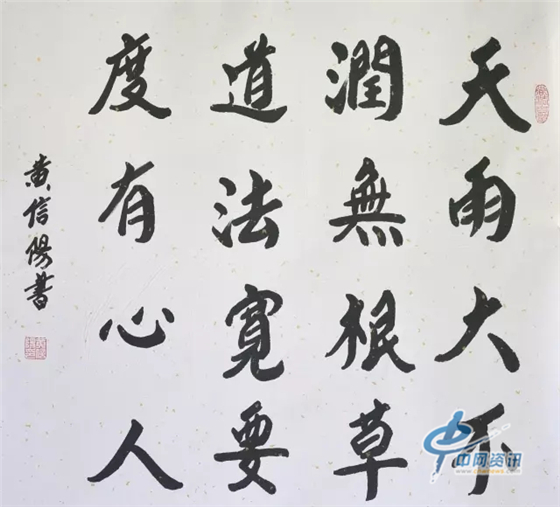 天雨大不
潤無根草
道法寬要
度有心人
黄信陽書
中网资讯